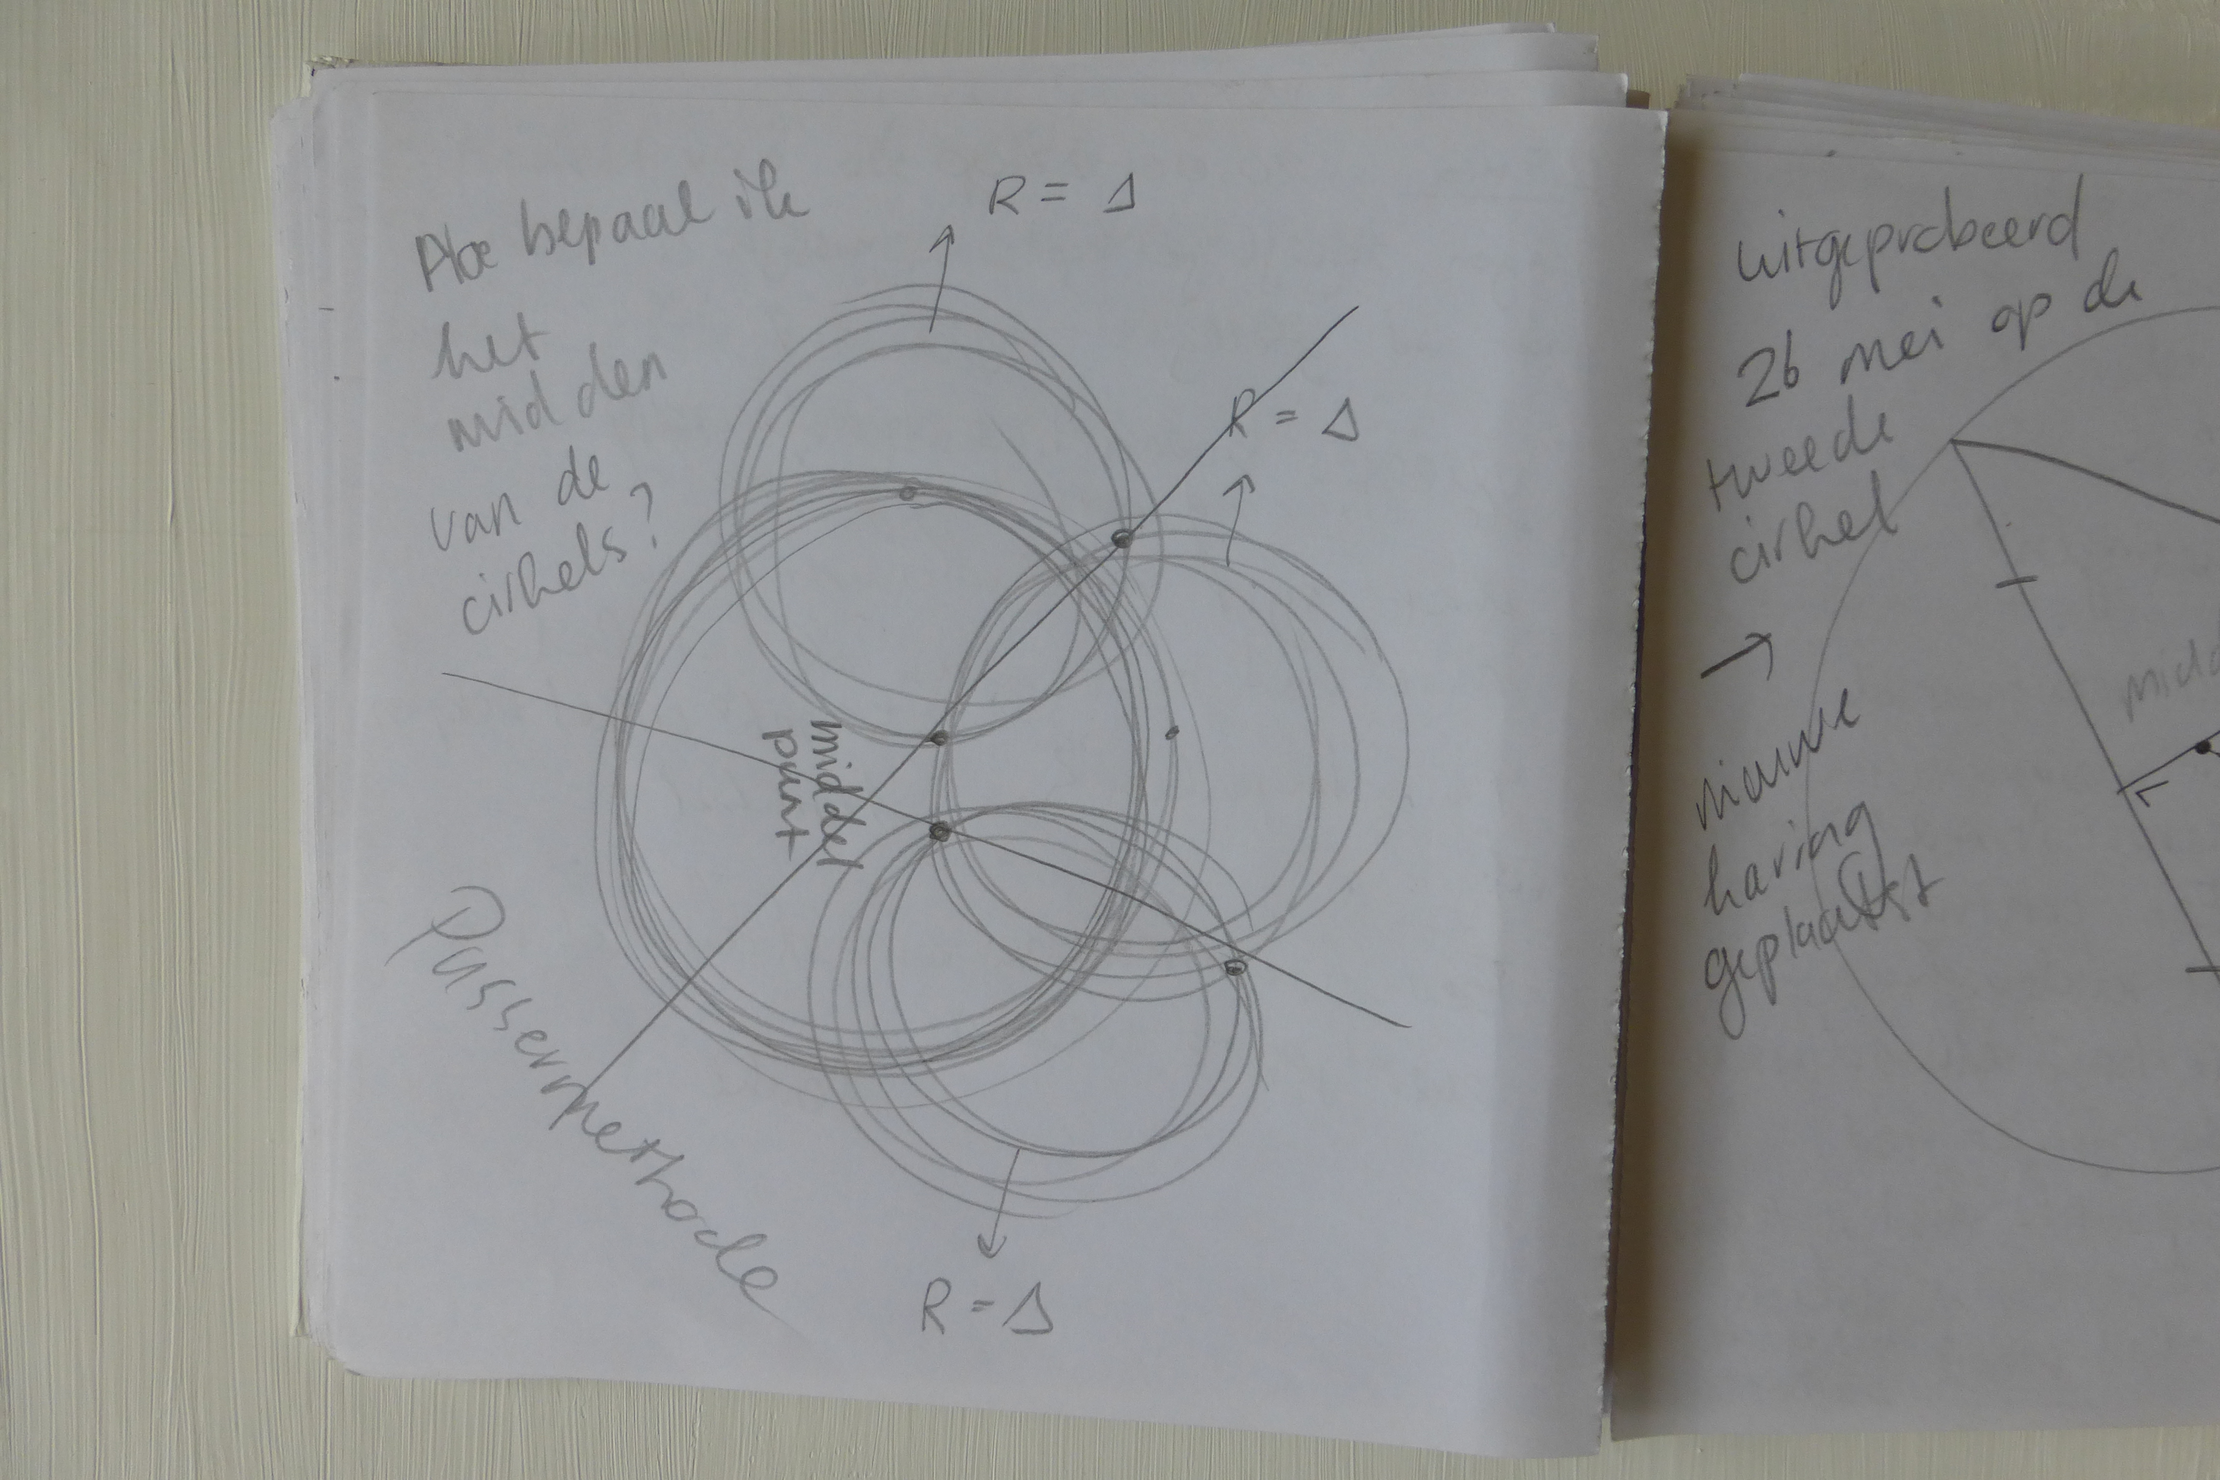 Hoe bepaal ik
het
midden
van de
cirkels?
R = Δ
R = Δ
middel
punt
Passermethode
R = Δ
uitgeprobeerd
26 mei op de
tweede
cirkel
→
nieuwe
haring
geplaatst
midd